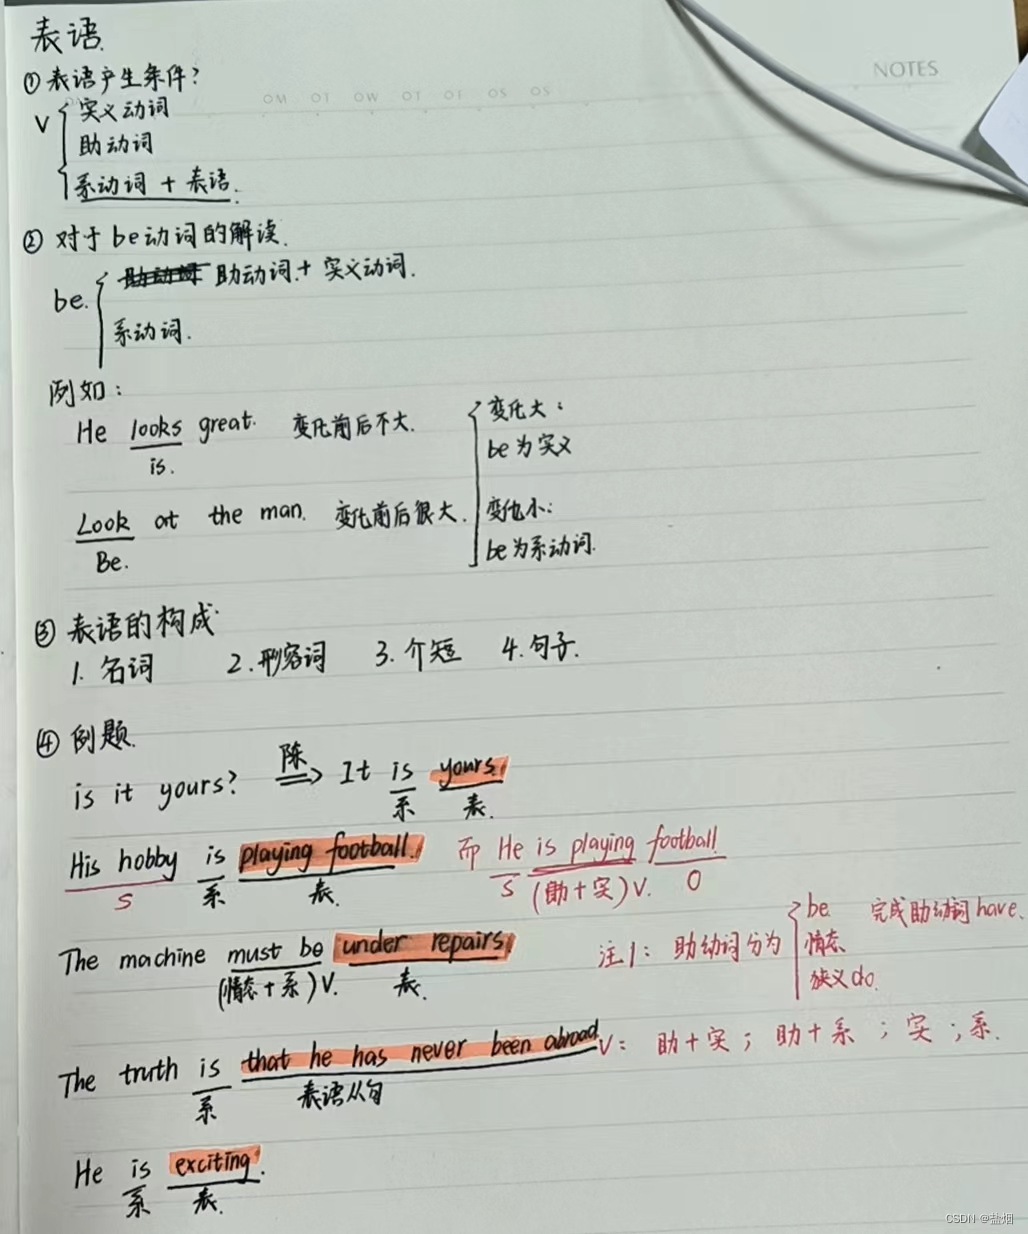 NOTES
表语.
① 表语产生条件?
V { 实义动词
助动词
系动词 + 表语.
② 对于be动词的解读.
be. { 助动词 + 实义动词.
系动词.
例如:
He looks great. 变化前后不大.
is.
Look at the man. 变化前后很大.
Be.
{ 变化大:
be为实义
变化小:
be为系动词.
③ 表语的构成
1. 名词 2. 形容词 3. 介短 4. 句子.
④ 例题.
is it yours? 陈 => It is yours.
系 表.
His hobby is playing football. 而 He is playing football.
S 系 表. S (助+实)V. O
The machine must be under repairs.
(情态+系)V. 表.
注1: 助动词分为 { be. 完成助动词have.
情态
狭义do.
The truth is that he has never been abroad.
系 表语从句
V: 助+实; 助+系; 实; 系.
He is exciting.
系 表.
CSDN @盐烟